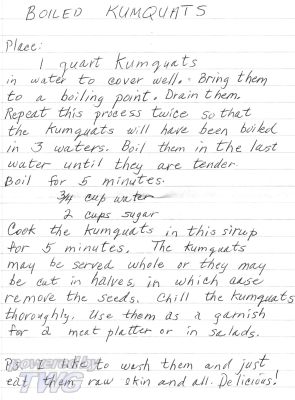 BOILED KUMQUATS
Place:
1 quart Kumquats
in water to cover well. Bring them
to a boiling point. Drain them.
Repeat this process twice so that
the kumquats will have been boiled
in 3 waters. Boil them in the last
water until they are tender
Boil for 5 minutes.
3/4 cup water
2 cups sugar
Cook the kumquats in this sirup
for 5 minutes. The kumquats
may be served whole or they may
be cut in halves, in which case
remove the seeds. Chill the kumquats
thoroughly. Use them as a garnish
for a meat platter or in salads.
PS I like to wash them and just
eat them raw skin and all. Delicious!
powered by
TWG